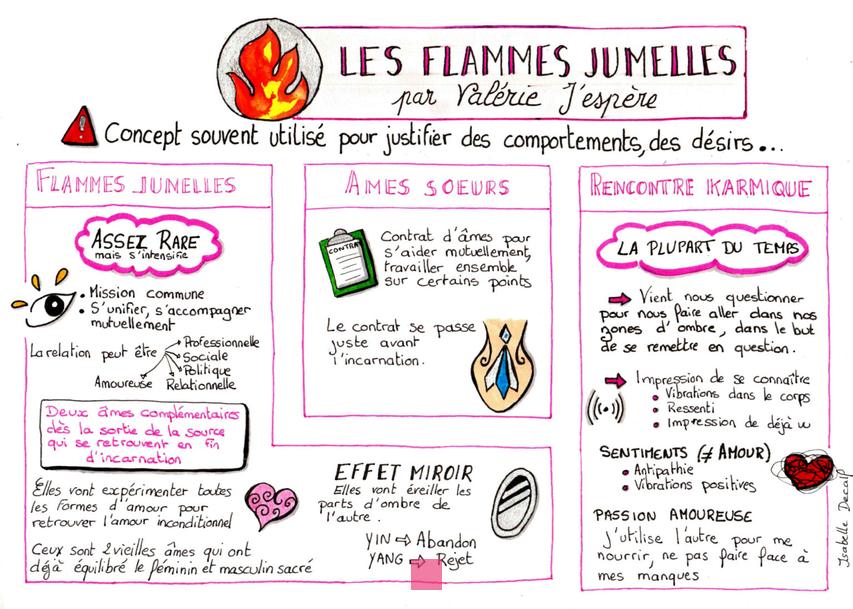 LES FLAMMES JUMELLES
par Valérie J'espère
! Concept souvent utilisé pour justifier des comportements, des désirs...
FLAMMES JUMELLES
ASSEZ RARE
mais s'intensifie
• Mission commune
• S'unifier, s'accompagner
mutuellement
La relation peut être
Professionnelle
Sociale
Politique
Relationnelle
Amoureuse
Deux âmes complémentaires
dès la sortie de la source
qui se retrouvent en fin
d'incarnation
Elles vont expérimenter toutes
les formes d'amour pour
retrouver l'amour inconditionnel
Ceux sont 2 vieilles âmes qui ont
déjà équilibré le féminin et masculin sacré
AMES SOEURS
CONTRAT
Contrat d'âmes pour
s'aider mutuellement,
travailler ensemble
sur certains points
Le contrat se passe
juste avant
l'incarnation.
EFFET MIROIR
Elles vont éveiller les
parts d'ombre de
l'autre.
YIN ⇨ Abandon
YANG ⇨ Rejet
RENCONTRE KARMIQUE
LA PLUPART DU TEMPS
➡ Vient nous questionner
pour nous faire aller dans nos
zones d'ombre, dans le but
de se remettre en question.
➡ Impression de se connaître
• Vibrations dans le corps
• Ressenti
• Impression de déjà vu
SENTIMENTS (≠ AMOUR)
• Antipathie
• Vibrations positives
PASSION AMOUREUSE
J'utilise l'autre pour me
nourrir, ne pas faire face à
mes manques
Isabelle Decalf